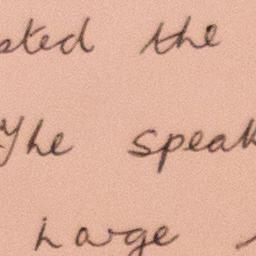 sted the
The speak
large